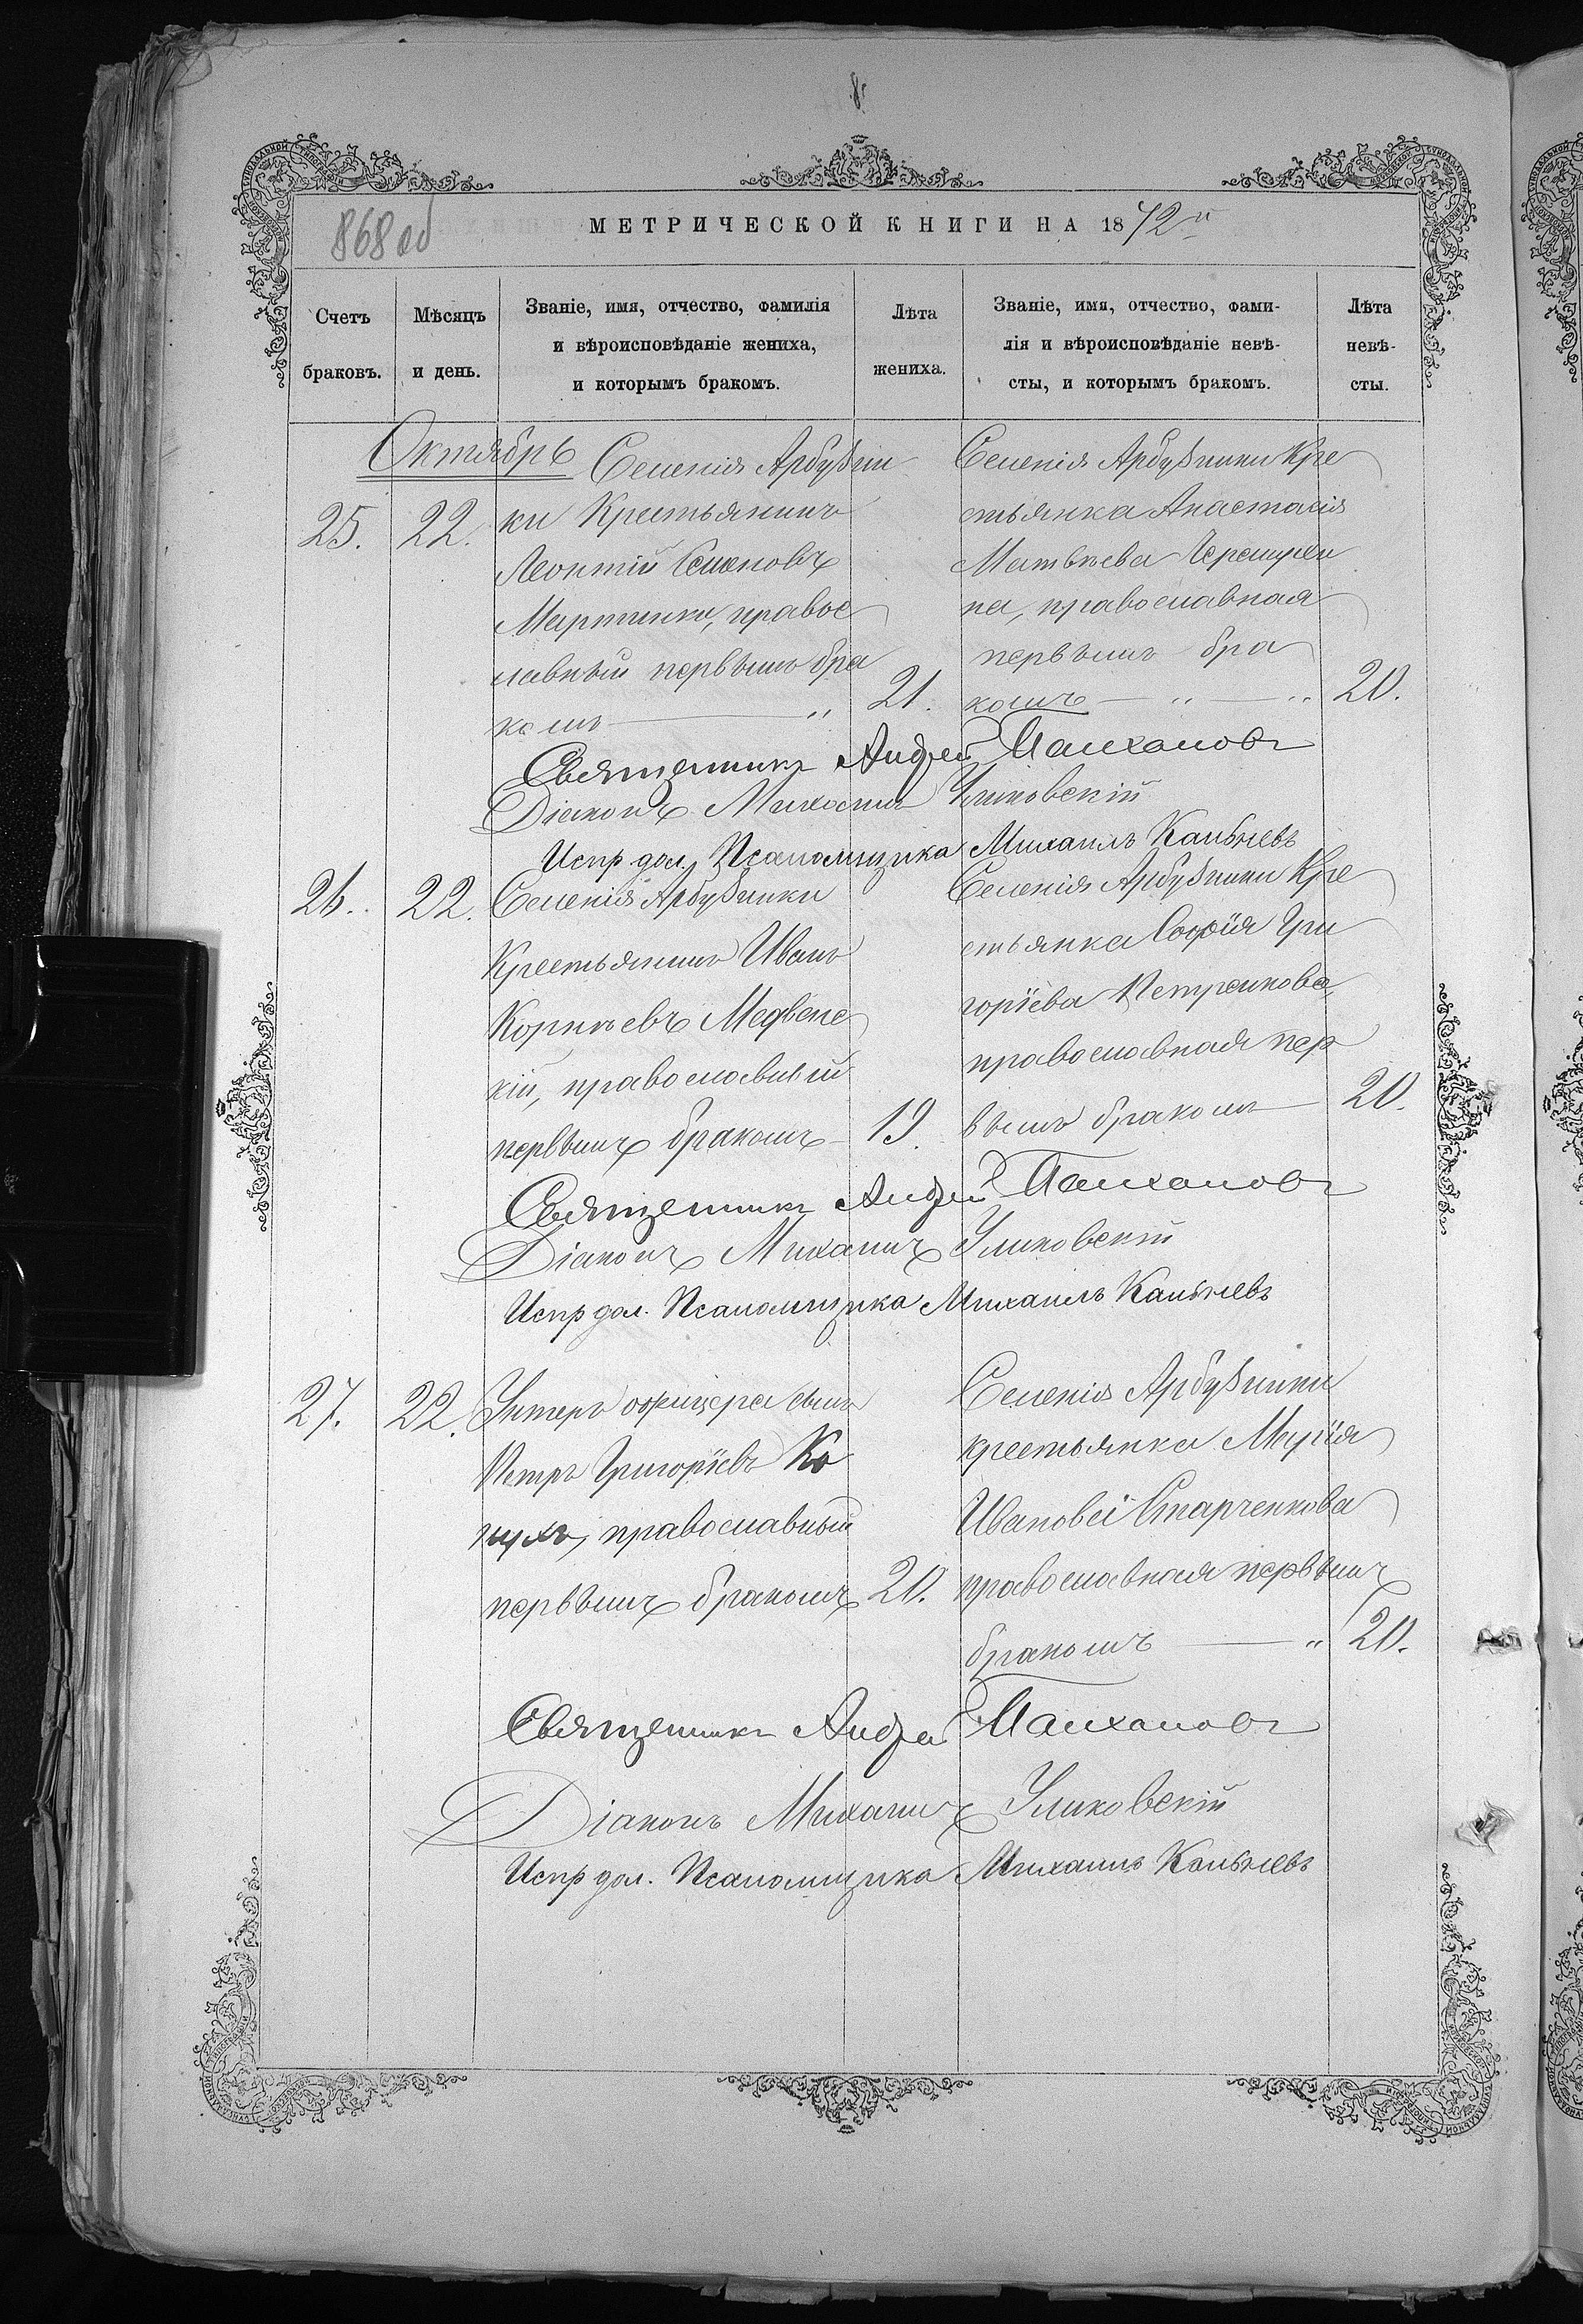 8.
868 об
МЕТРИЧЕСКОЙ КНИГИ НА 1872й
Счетъ браковъ.
Мѣсяцъ и день.
Званіе, имя, отчество, фамилія
и вѣроисповѣданіе жениха,
и которымъ бракомъ.
Лѣта жениха.
Званіе, имя, отчество, фами-
лія и вѣроисповѣданіе невѣ-
сты, и которымъ бракомъ.
Лѣта невѣ-
сты.
Октябрь
25. 22.
Селенія Арбузин
ки Крестьянинъ
Леонтій Семеновъ
правос
лавный первымъ бра
комъ — „ 21.
Селенія Арбузинки Кре
стьянка Анастасія
Матвѣева
на, православная
первымъ бра
комъ — „ — „ 20.
Священникъ Андрей
Діаконъ Михаилъ Улиновскій
Испр дол. Псаломщика Михаилъ
26. 22.
Селенія Арбузинки
Крестьянинъ Иванъ
Корнѣевъ
кій, православный
первымъ бракомъ — 19.
Селенія Арбузинки Кре
стьянка Софія Гри
горіева Петренкова,
православная пер
вымъ бракомъ — 20.
Священникъ Андрей
Діаконъ Михаилъ Улиновскій
Испр дол. Псаломщика Михаилъ
27. 22.
Унтеръ офицера сынъ
Петръ Григоріевъ Ко
православный
первымъ бракомъ 20.
Селенія Арбузинки
крестьянка Марія
Иванова Старченкова
православная первымъ
бракомъ — „ 20.
Священникъ Андрей
Діаконъ Михаилъ Улиновскій
Испр дол. Псаломщика Михаилъ